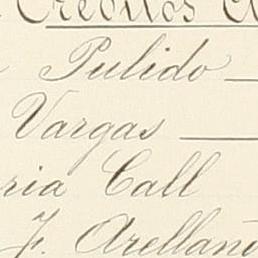 Creditos
Pulido
Vargas
ria Call
F. Arellan